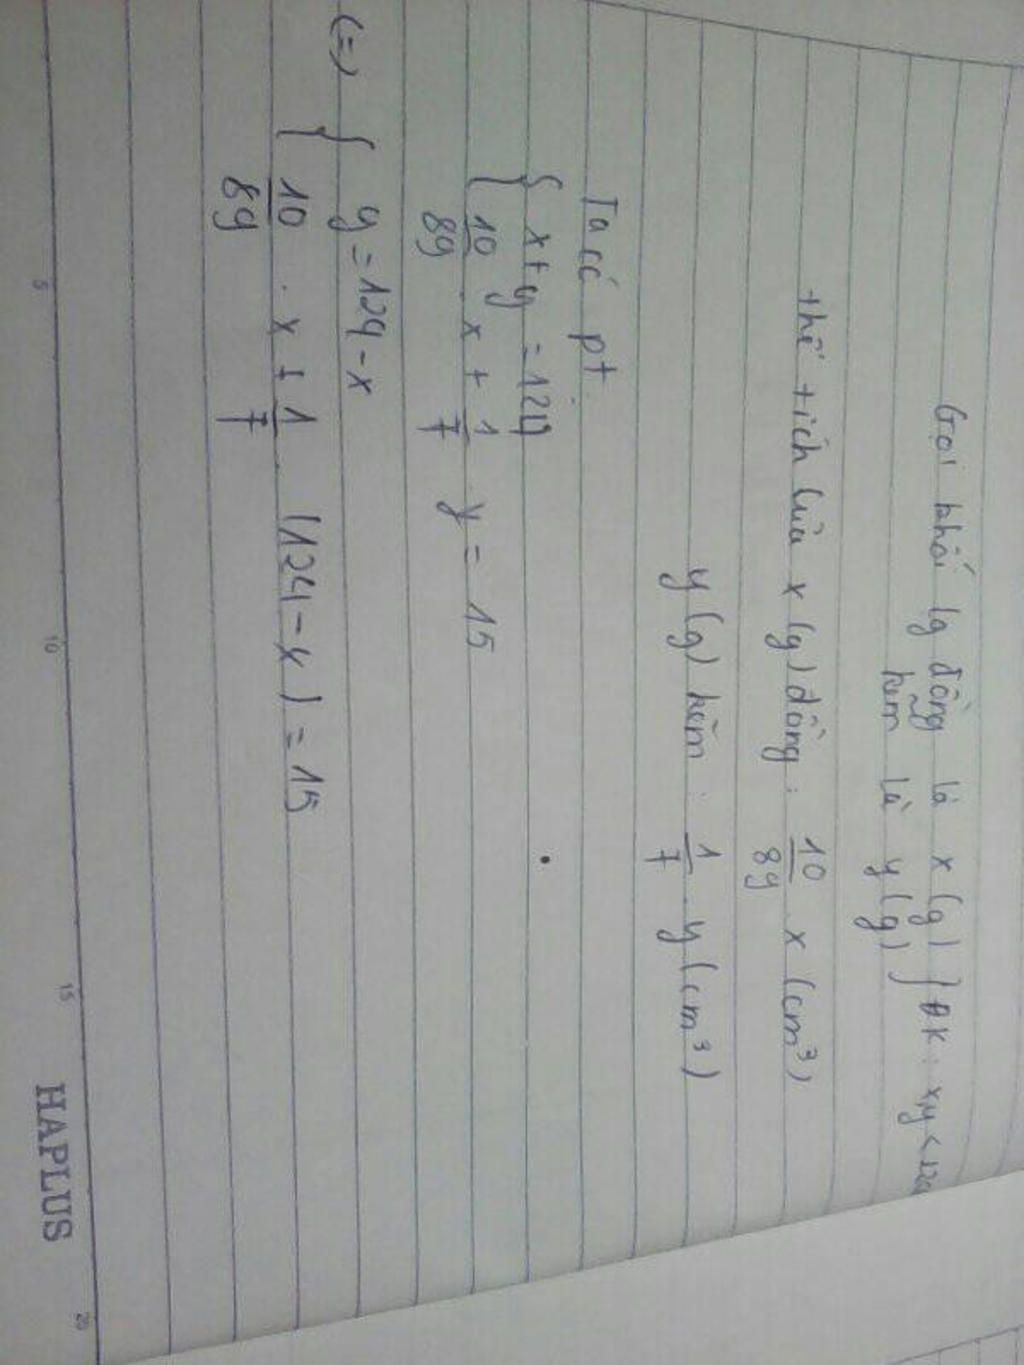 Gọi khối lg đồng là x (g) } ĐK: x,y < 124
kẽm là y (g)
thể tích của x (g) đồng: 10/89 x (cm³)
y (g) kẽm: 1/7 y (cm³)
Ta có pt.
{ x + y = 124
{ 10/89 x + 1/7 y = 15
(=) { y = 124 - x
{ 10/89 . x + 1/7 . (124 - x) = 15
5 10 15 20
HAPLUS